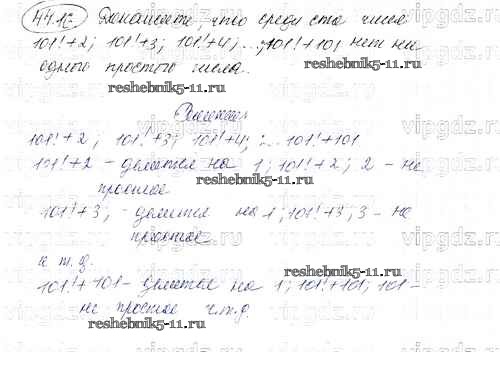 44.12 Докажите, что среди ста чисел
101!+2; 101!+3; 101!+4; ...; 101!+101 нет ни
одного простого числа.
reshebnik5-11.ru
Решение
101!+2; 101!+3; 101!+4; ... 101!+101
reshebnik5-11.ru
101!+2 - делится на 1; 101!+2; 2 - не
простое
reshebnik5-11.ru
101!+3; - делится на 1; 101!+3; 3 - не
простое
и т.д.
reshebnik5-11.ru
101!+101 - делится на 1; 101!+101; 101 -
не простое ч.т.д.
reshebnik5-11.ru
vipgdz.ru